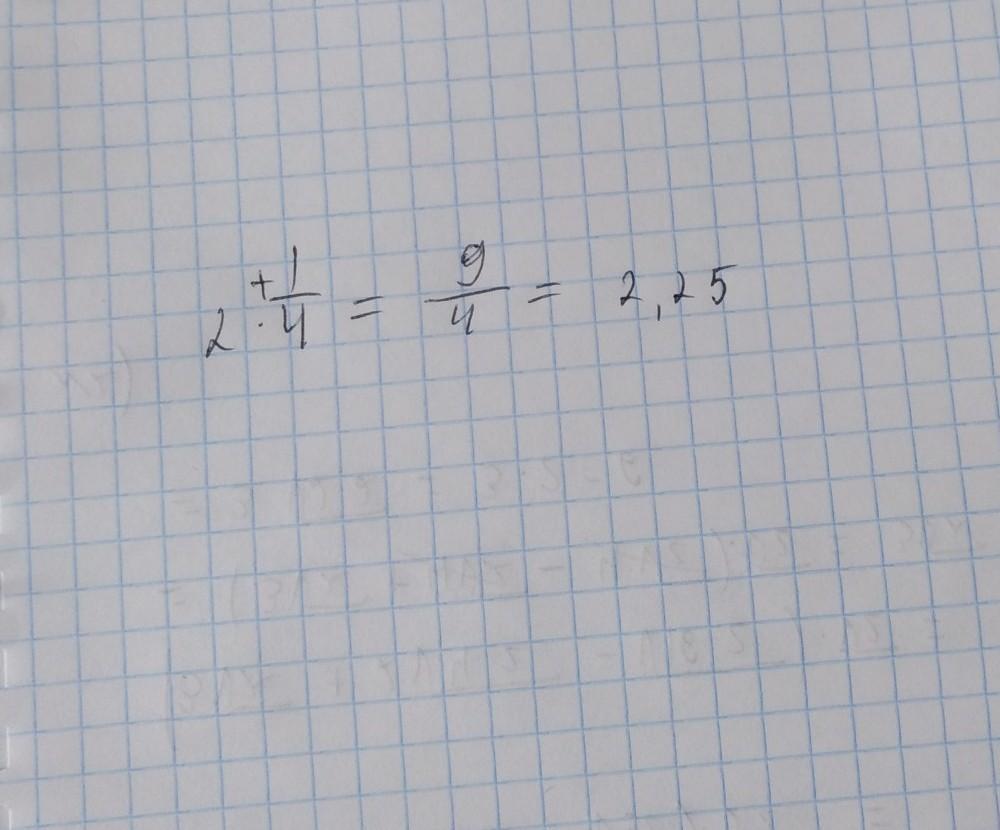 2 +1/·4 = 9/4 = 2,25